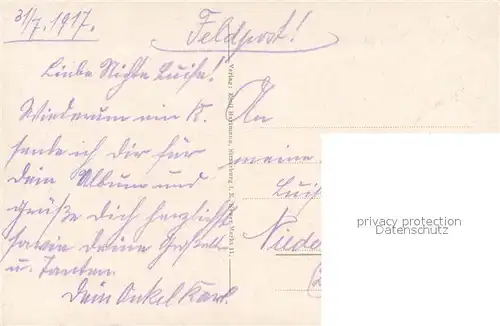 31/7. 1917.
Feldpost!
Liebe Nichte Luise!
Wiederum ein K.
sende ich Dir für
dein Album und
grüße Dich herzlichst
sowie deine Großelt.
u. Tanten.
Dein Onkel Karl.
An
meine
Luis
Niede
privacy protection
Datenschutz